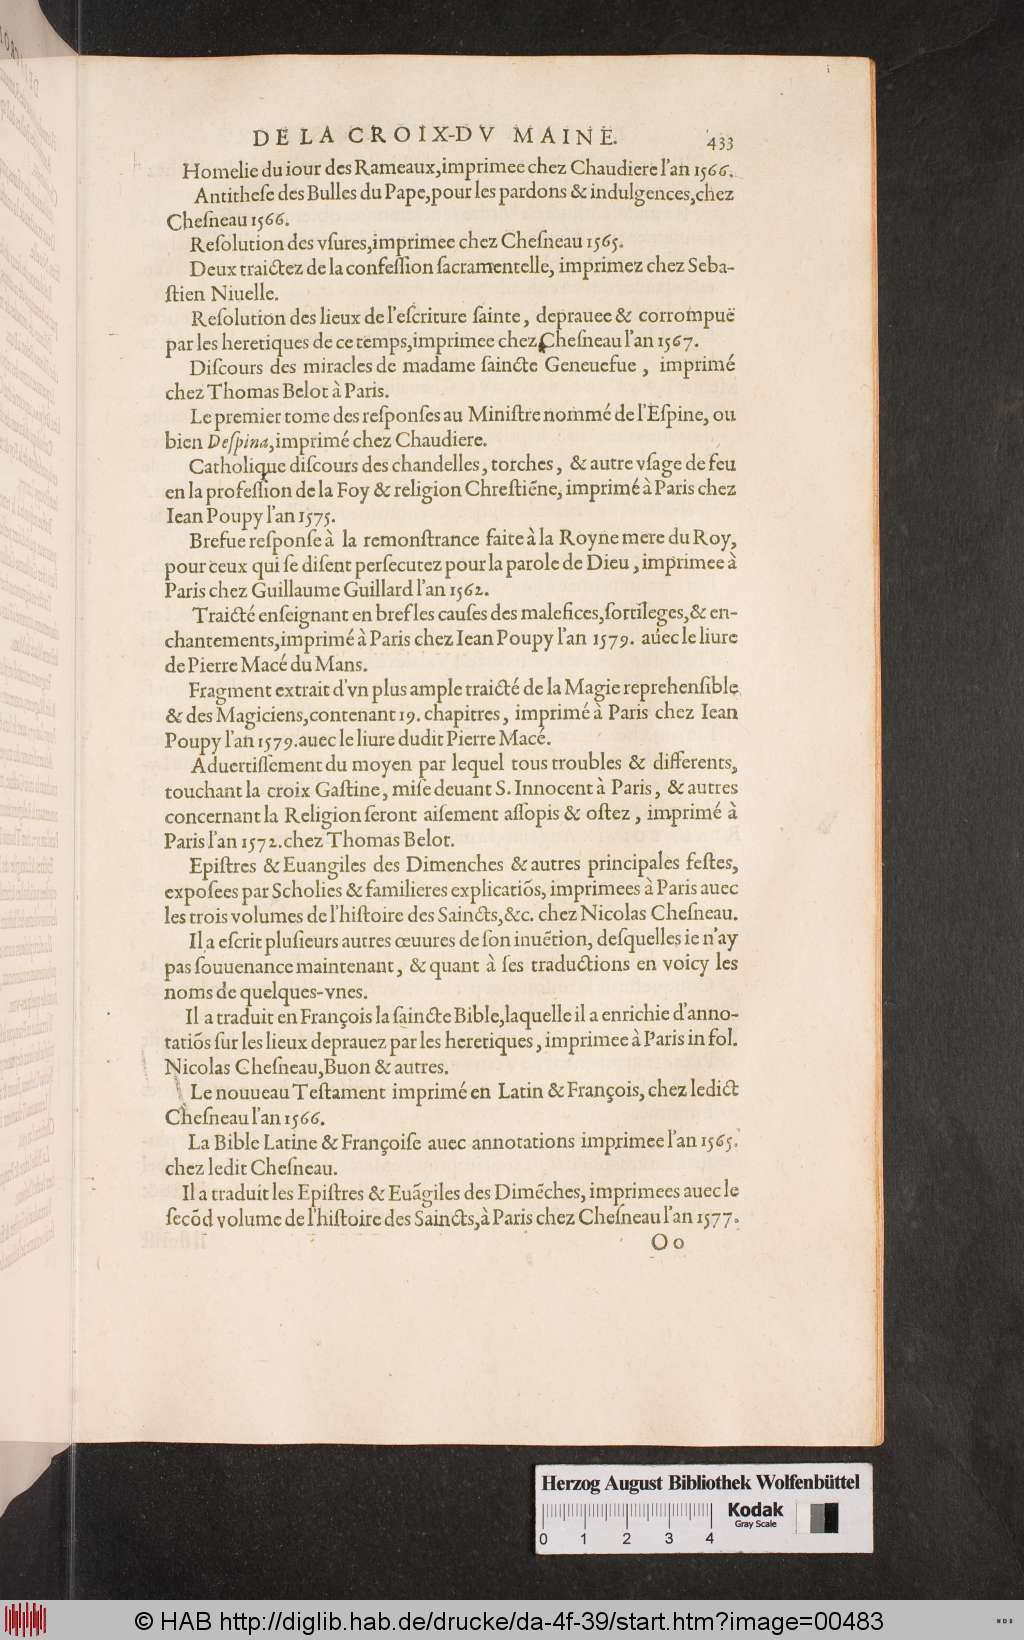 DE LA CROIX-DV MAINE. 433
Homelie du iour des Rameaux, imprimee chez Chaudiere l'an 1566.
Antitheſe des Bulles du Pape, pour les pardons & indulgences, chez
Cheſneau 1566.
Reſolution des vſures, imprimee chez Cheſneau 1565.
Deux traictez de la confeſſion ſacramentelle, imprimez chez Seba-
ſtien Niuelle.
Reſolution des lieux de l'eſcriture ſainte, deprauee & corrompuë
par les heretiques de ce temps, imprimee chez Cheſneau l'an 1567.
Diſcours des miracles de madame ſaincte Geneuefue, imprimé
chez Thomas Belot à Paris.
Le premier tome des reſponſes au Miniſtre nommé de l'Eſpine, ou
bien Deſpina, imprimé chez Chaudiere.
Catholique diſcours des chandelles, torches, & autre vſage de feu
en la profeſſion de la Foy & religion Chreſtiẽne, imprimé à Paris chez
Iean Poupy l'an 1575.
Brefue reſponſe à la remonſtrance faite à la Royne mere du Roy,
pour ceux qui ſe diſent perſecutez pour la parole de Dieu, imprimee à
Paris chez Guillaume Guillard l'an 1562.
Traicté enſeignant en bref les cauſes des malefices, ſortileges, & en-
chantements, imprimé à Paris chez Iean Poupy l'an 1579. auec le liure
de Pierre Macé du Mans.
Fragment extrait d'vn plus ample traicté de la Magie reprehenſible
& des Magiciens, contenant 19. chapitres, imprimé à Paris chez Iean
Poupy l'an 1579. auec le liure dudit Pierre Macé.
Aduertiſſement du moyen par lequel tous troubles & differents,
touchant la croix Gaſtine, miſe deuant S. Innocent à Paris, & autres
concernant la Religion ſeront aiſement aſſopis & oſtez, imprimé à
Paris l'an 1572. chez Thomas Belot.
Epiſtres & Euangiles des Dimenches & autres principales feſtes,
expoſees par Scholies & familieres explicatiõs, imprimees à Paris auec
les trois volumes de l'hiſtoire des Saincts, &c. chez Nicolas Cheſneau.
Il a eſcrit pluſieurs autres œuures de ſon inuẽtion, deſquelles ie n'ay
pas ſouuenance maintenant, & quant à ſes traductions en voicy les
noms de quelques-vnes.
Il a traduit en François la ſaincte Bible, laquelle il a enrichie d'anno-
tatiõs ſur les lieux deprauez par les heretiques, imprimee à Paris in fol.
Nicolas Cheſneau, Buon & autres.
Le nouueau Teſtament imprimé en Latin & François, chez ledict
Cheſneau l'an 1566.
La Bible Latine & Françoiſe auec annotations imprimee l'an 1565.
chez ledit Cheſneau.
Il a traduit les Epiſtres & Euãgiles des Dimẽches, imprimees auec le
ſecõd volume de l'hiſtoire des Saincts, à Paris chez Cheſneau l'an 1577.
Oo
Herzog August Bibliothek Wolfenbüttel
Kodak
Gray Scale
0 1 2 3 4
© HAB http://diglib.hab.de/drucke/da-4f-39/start.htm?image=00483